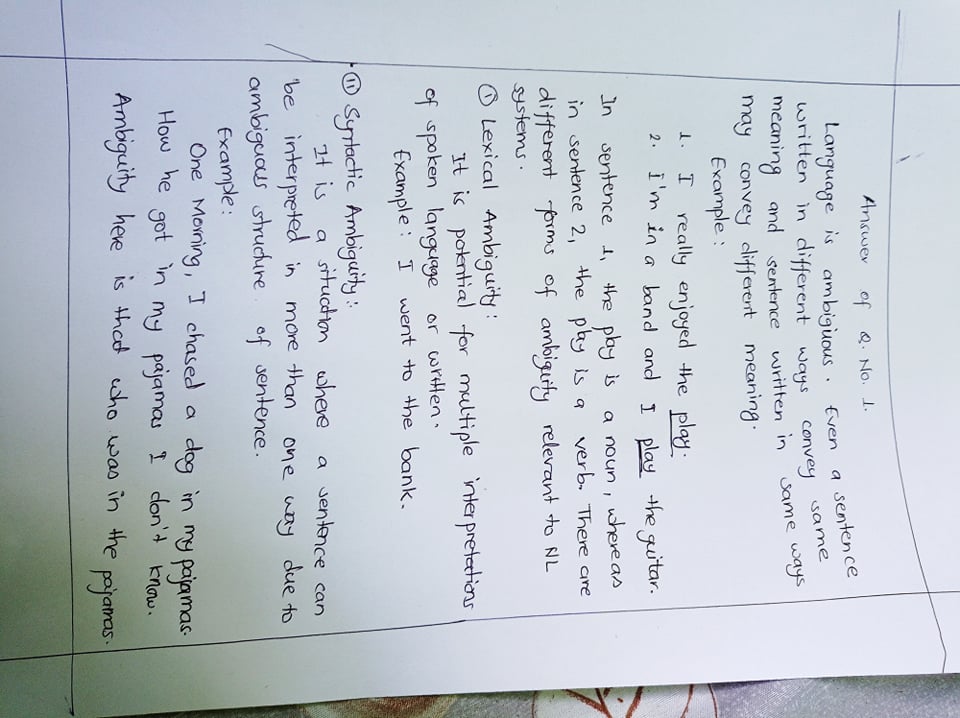 Answer of Q. No. 1.
Language is ambiguous. Even a sentence
written in different ways convey same
meaning and sentence written in same ways
may convey different meaning.
Example:
1. I really enjoyed the play.
2. I'm in a band and I play the guitar.
In sentence 1, the play is a noun, whereas
in sentence 2, the play is a verb. There are
different forms of ambiguity relevant to NL
systems.
① Lexical Ambiguity:
It is potential for multiple interpretations
of spoken language or written.
Example: I went to the bank.
⑪ Syntactic Ambiguity:
It is a situation where a sentence can
be interpreted in more than one way due to
ambiguous structure of sentence.
Example:
One Morning, I chased a dog in my pajamas.
How he got in my pajamas I don't know.
Ambiguity here is that who was in the pajamas.